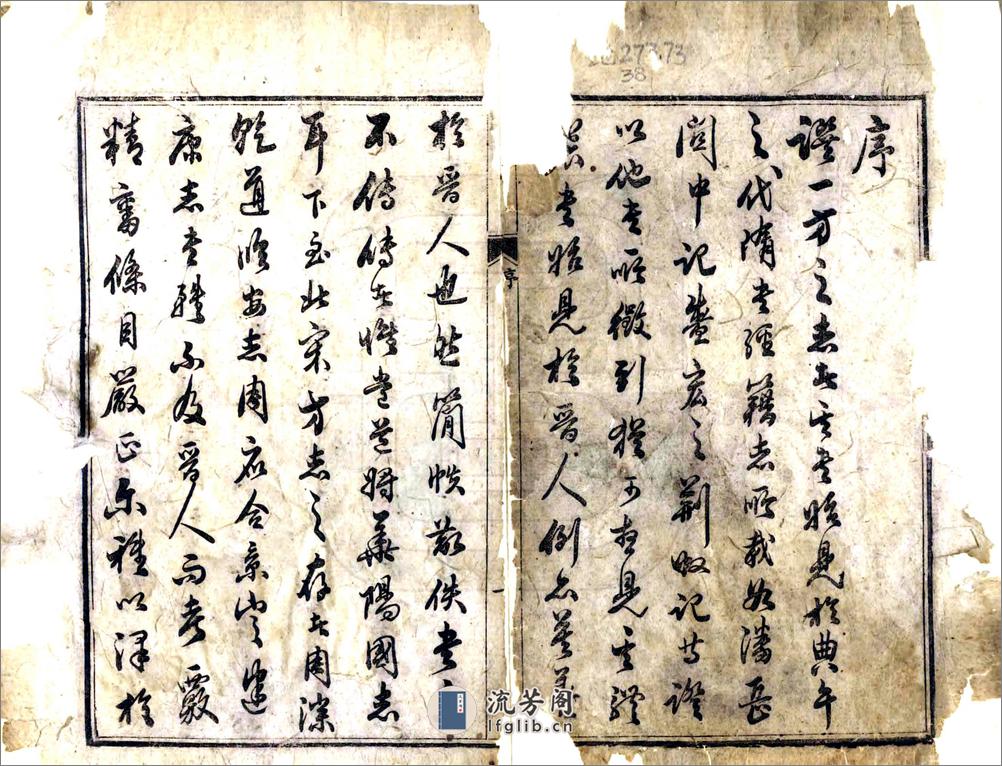 序
證一方之志者其書始見於典午
之代隋書經籍志所載如潘岳
關中記盛宏之荊州記等證
以他書所徵引猶可想見其體
書始見於晉人例亦甚
於晉人也然簡帙散佚書
不傳傳者惟常道將華陽國志
耳下至北宋方志之存者周淙
乾道臨安志周應合景定建
康志書雖不及晉人而考覈
精審條目嚴正亦種以澤於
序
一
273.73
38
流芳阁
lfglib.cn